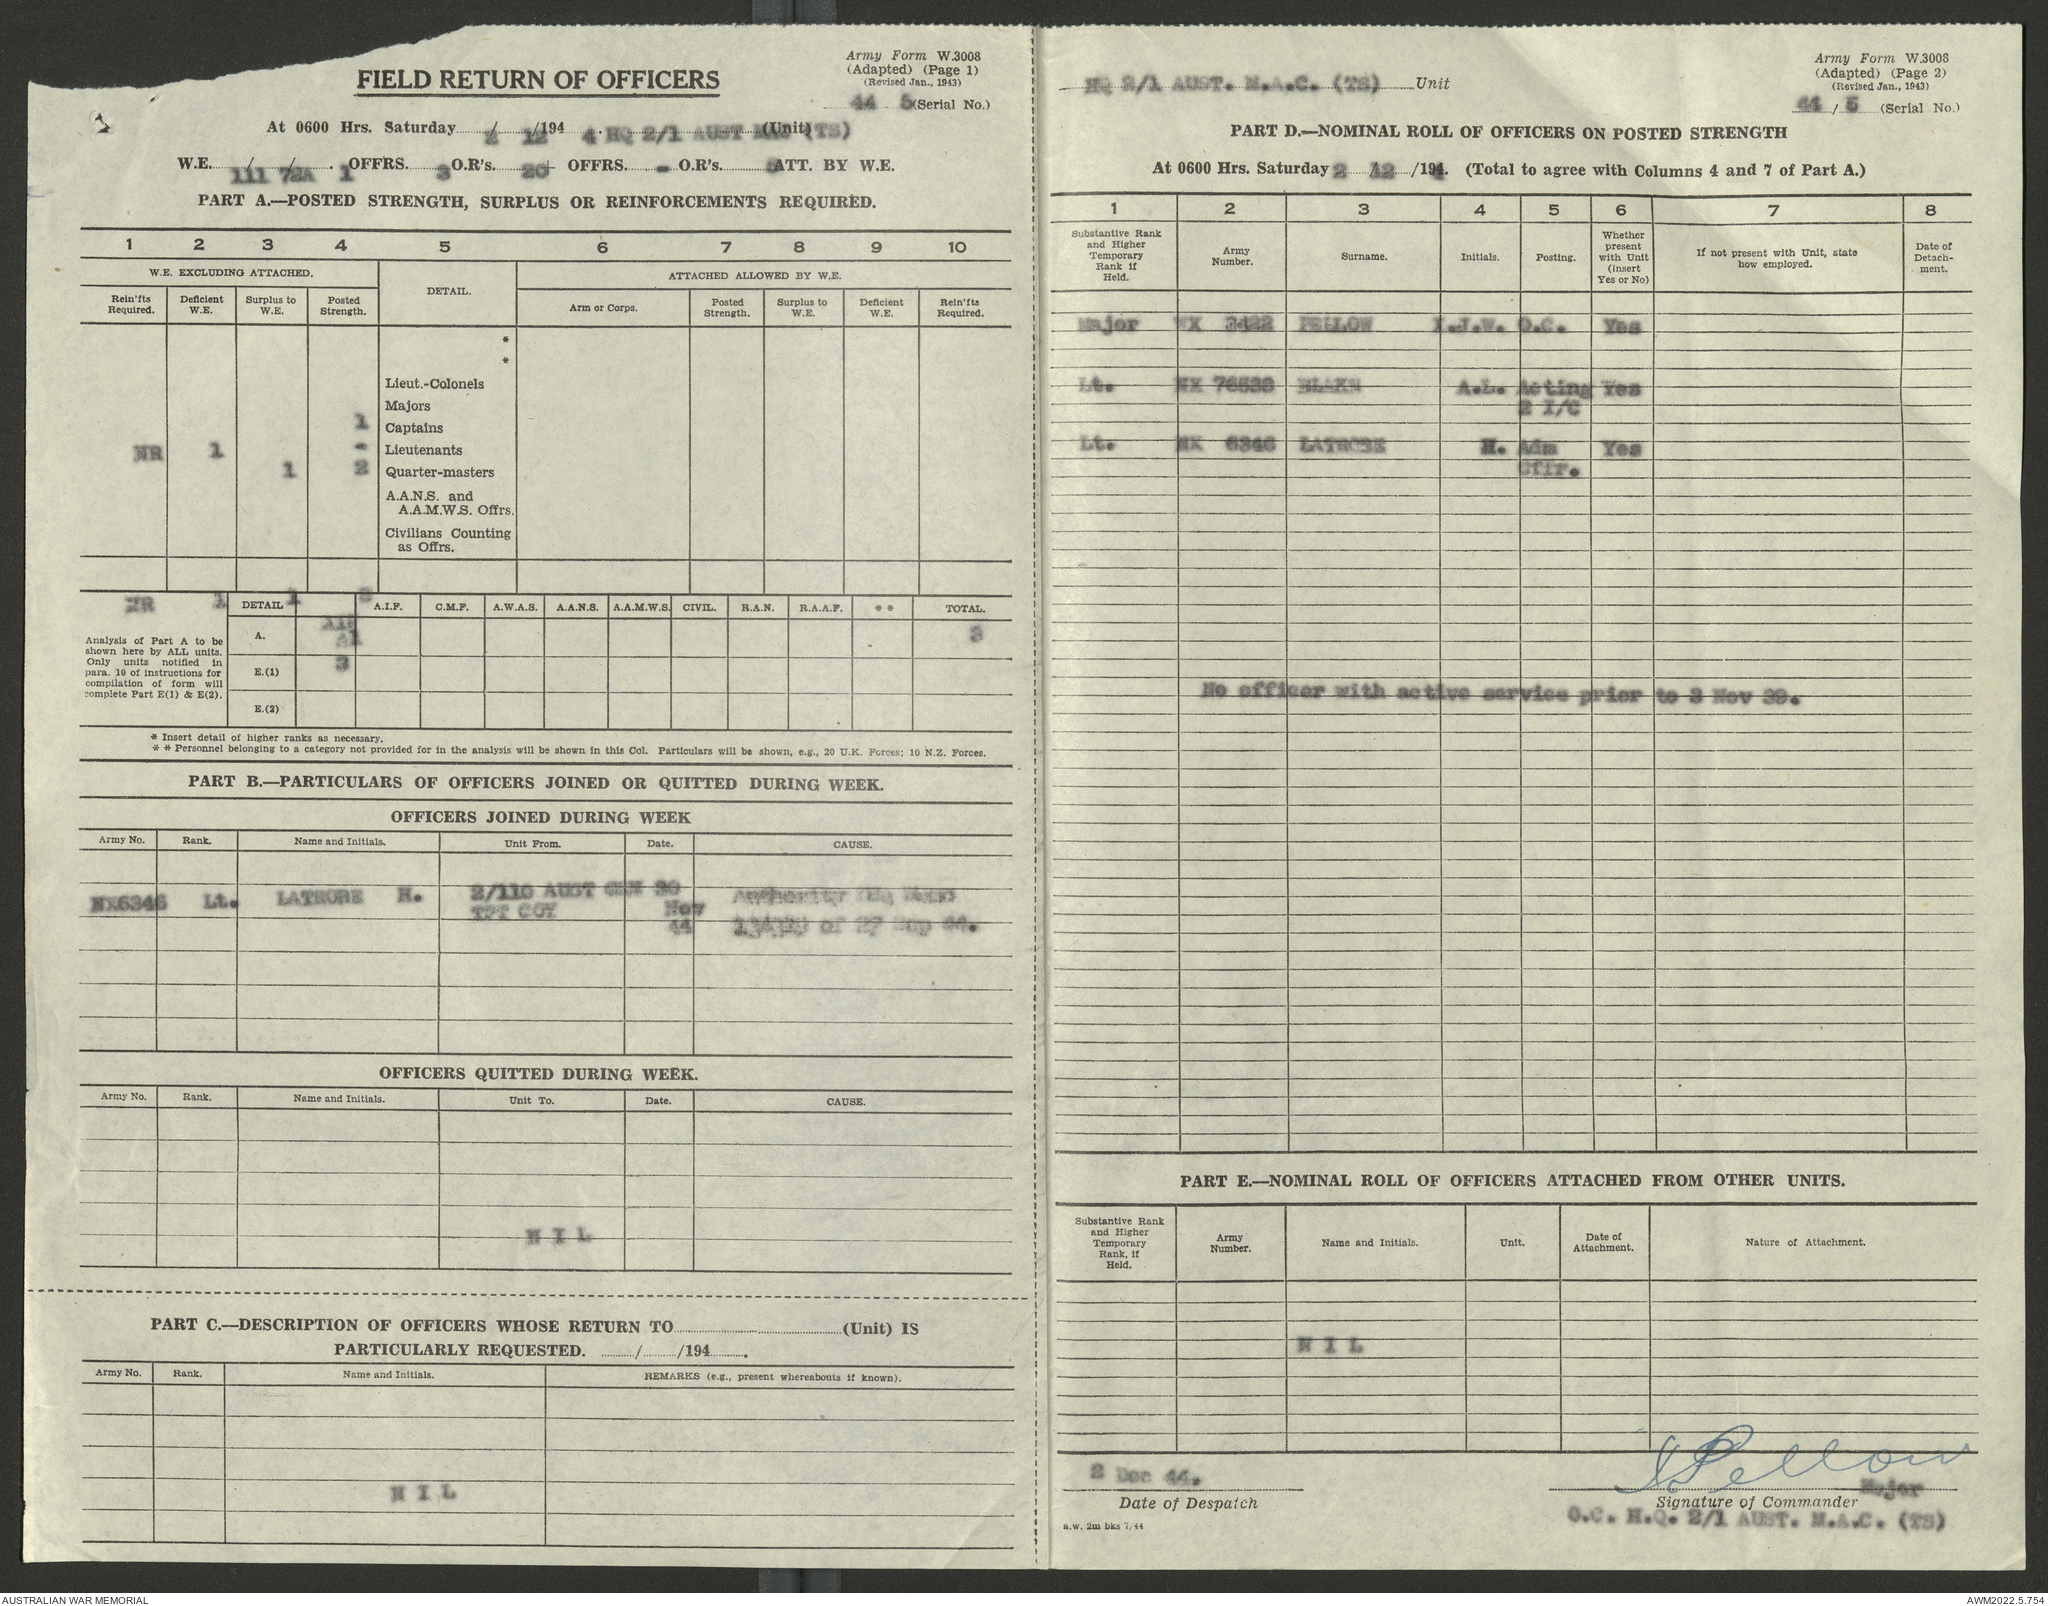 Army Form W.3008
(Adapted) (Page 1)
(Revised Jan., 1943)
44 5 (Serial No.)
FIELD RETURN OF OFFICERS
At 0600 Hrs. Saturday 2 / 12 /194 4 HQ 2/1 AUST MAC (TS) (Unit)
W.E. 111 / 72A / 1 OFFRS. 3 O.R's. 20 + OFFRS. - O.R's. ATT. BY W.E.
PART A.—POSTED STRENGTH, SURPLUS OR REINFORCEMENTS REQUIRED.
1 2 3 4 5 6 7 8 9 10
W.E. EXCLUDING ATTACHED. DETAIL. ATTACHED ALLOWED BY W.E.
Rein'fts Required. Deficient W.E. Surplus to W.E. Posted Strength. Arm or Corps. Posted Strength. Surplus to W.E. Deficient W.E. Rein'fts Required.
*
*
Lieut.-Colonels
Majors
1 Captains
NR 1 - Lieutenants
1 2 Quarter-masters
A.A.N.S. and
A.A.M.W.S. Offrs.
Civilians Counting
as Offrs.
NR 1 1
DETAIL A.I.F. C.M.F. A.W.A.S. A.A.N.S. A.A.M.W.S. CIVIL. R.A.N. R.A.A.F. * * TOTAL.
Analysis of Part A to be
shown here by ALL units.
Only units notified in
para. 10 of instructions for
compilation of form will
complete Part E(1) & E(2).
A. A1 3
E.(1) 3
E.(2)
* Insert detail of higher ranks as necessary.
* * Personnel belonging to a category not provided for in the analysis will be shown in this Col. Particulars will be shown, e.g., 20 U.K. Forces; 10 N.Z. Forces.
PART B.—PARTICULARS OF OFFICERS JOINED OR QUITTED DURING WEEK.
OFFICERS JOINED DURING WEEK
Army No. Rank. Name and Initials. Unit From. Date. CAUSE.
NX6346 Lt. LATROBE H. 2/110 AUST GEN 30 Authority
TPT COY Nov
44 of 27 Sep 44.
OFFICERS QUITTED DURING WEEK.
Army No. Rank. Name and Initials. Unit To. Date. CAUSE.
N I L
PART C.—DESCRIPTION OF OFFICERS WHOSE RETURN TO (Unit) IS
PARTICULARLY REQUESTED. / /194 .
Army No. Rank. Name and Initials. REMARKS (e.g., present whereabouts if known).
N I L
Army Form W.3008
(Adapted) (Page 2)
(Revised Jan., 1943)
44 / 5 (Serial No.)
HQ 2/1 AUST. M.A.C. (TS) Unit
PART D.—NOMINAL ROLL OF OFFICERS ON POSTED STRENGTH
At 0600 Hrs. Saturday 2 /12 /194 4. (Total to agree with Columns 4 and 7 of Part A.)
1 2 3 4 5 6 7 8
Substantive Rank and Higher Temporary Rank if Held. Army Number. Surname. Initials. Posting. Whether present with Unit (insert Yes or No) If not present with Unit, state how employed. Date of Detach-ment.
Major WX 3422 PELLOW I.J.W. O.C. Yes
Lt. NX 76538 A.L. Acting Yes
2 I/C
Lt. NX 6346 LATROBE H. Adm Yes
Offr.
No officer with active service prior to 3 Nov 39.
PART E.—NOMINAL ROLL OF OFFICERS ATTACHED FROM OTHER UNITS.
Substantive Rank and Higher Temporary Rank, if Held. Army Number. Name and Initials. Unit. Date of Attachment. Nature of Attachment.
N I L
2 Dec 44.
Date of Despatch
a.w. 2m bks 7/44
Pellow
Major
Signature of Commander
O.C. H.Q. 2/1 AUST. M.A.C. (TS)
AUSTRALIAN WAR MEMORIAL
AWM2022.5.754